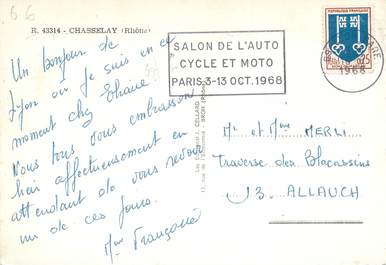 66
R. 43314 - CHASSELAY (Rhône)
Un bonjour de
Lyon où je suis en ce
moment chez Eliane
Nous tous vous embrassons
bien affectueusement en
attendant de vous revoir
un de ces jours.
Mme Françoise
SALON DE L'AUTO
CYCLE ET MOTO
PARIS 3-13 OCT. 1968
REPUBLIQUE FRANCAISE
0,25
1968
J. CELLARD
BRON (Rhône)
Mr et Mme MERLI
Traverse des Polacassins
13. ALLAUCH